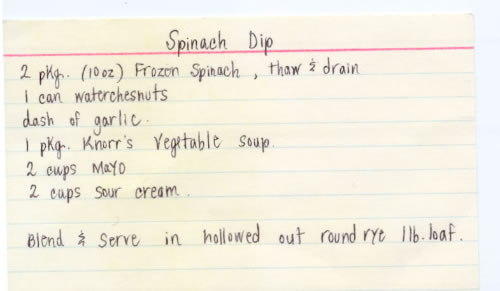 Spinach Dip
2 pkg. (10oz) Frozen Spinach, thaw & drain
1 can waterchesnuts
dash of garlic.
1 pkg. Knorr's Vegetable soup.
2 cups Mayo
2 cups sour cream.
Blend & Serve in hollowed out round rye 1lb. loaf.